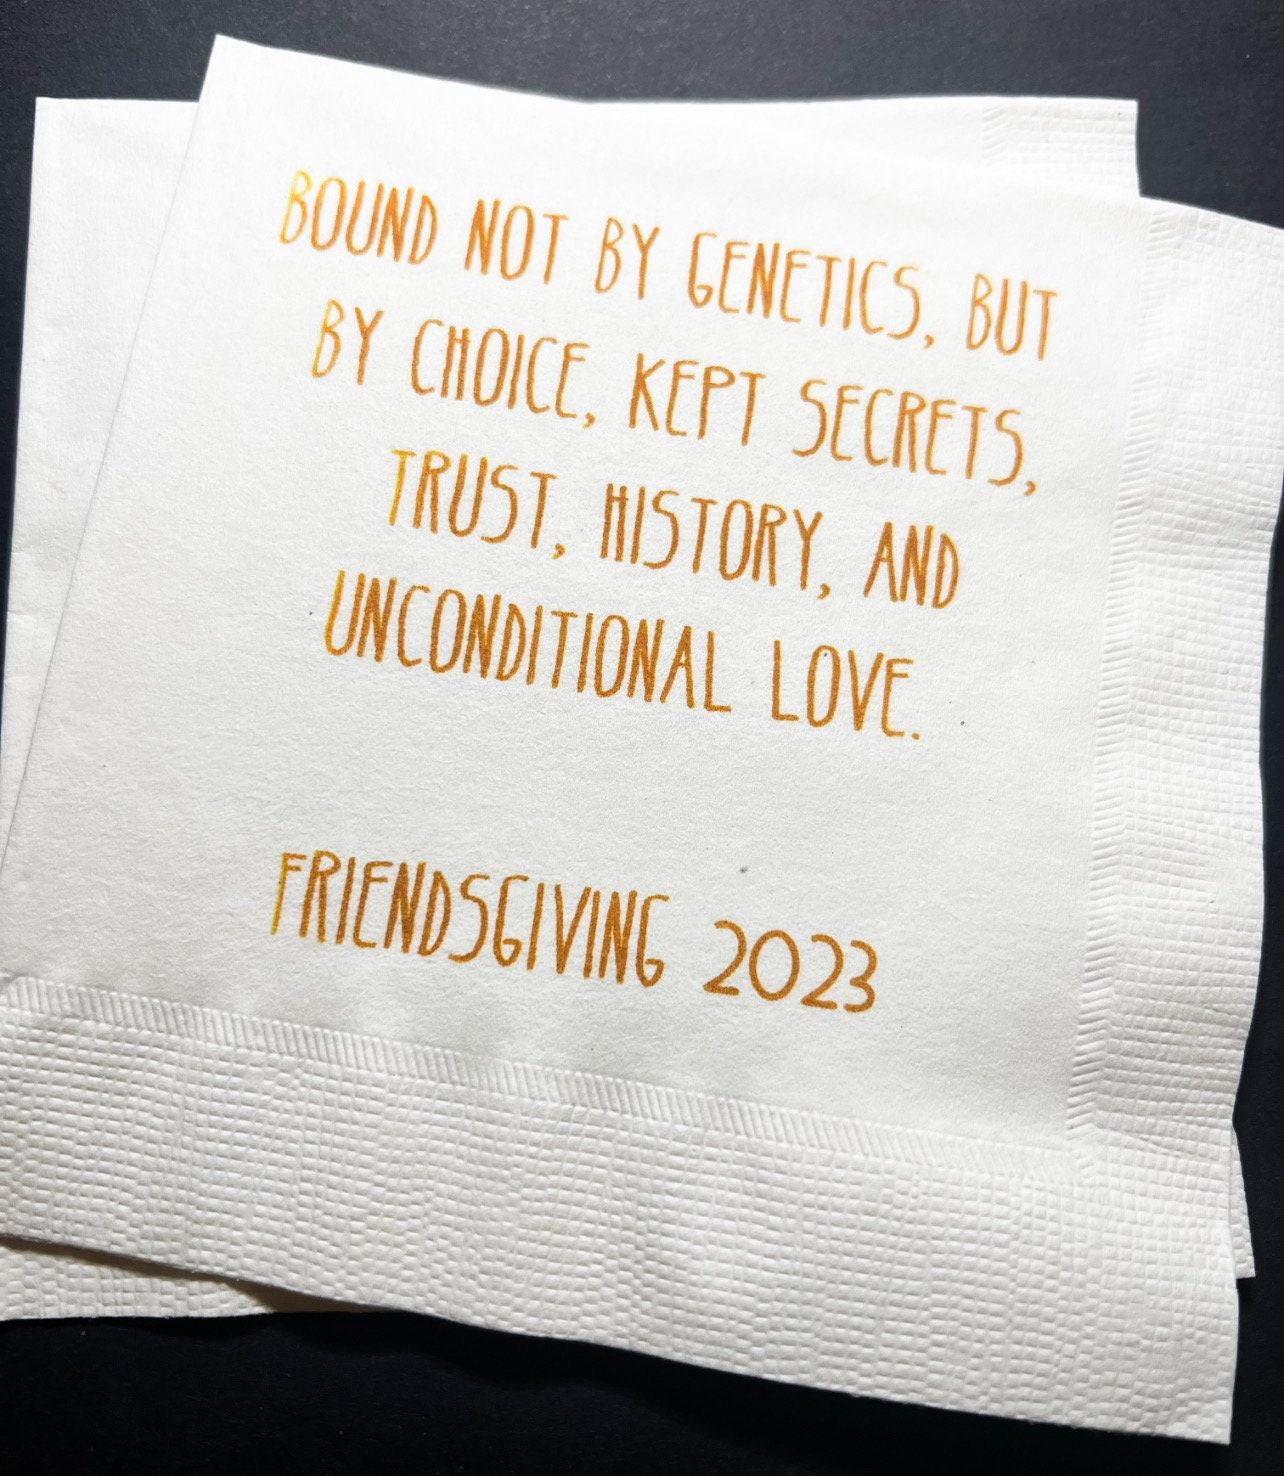 BOUND NOT BY GENETICS, BUT
BY CHOICE, KEPT SECRETS,
TRUST, HISTORY, AND
UNCONDITIONAL LOVE.
FRIENDSGIVING 2023